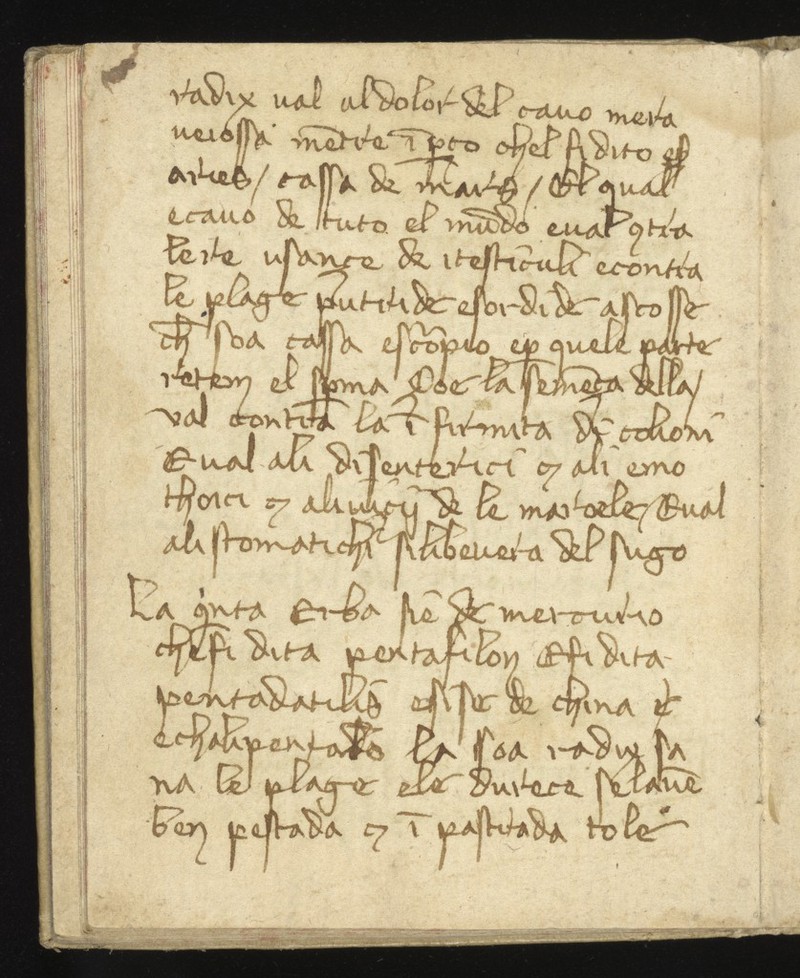 radix val al dolor del cavo mera
veiossa mẽtre ĩ pco chel si dito es
aries / cassa de marts / El qual
e cavo de tuto el mũdo e val 9tra
le re usance de i testiculi e contra
le plage putride e sordide ascosse
ch soa cassa e scõpio e p quele parte
reten el spma
val contra la ĩ firmita di colioni
E val ali disenterici ⁊ ali emo
thoici ⁊ ali vicij de le marcele E val
ali stomatichi si li bevera del sugo
La q̃nta Erba siẽ de mercurio
che si dita pentafilon E si dita
pentadatilis e sise de china e
e chali la soa radix sa
na le plage e le durece se lavẽ
ben pestada ⁊ ĩ pastada tole